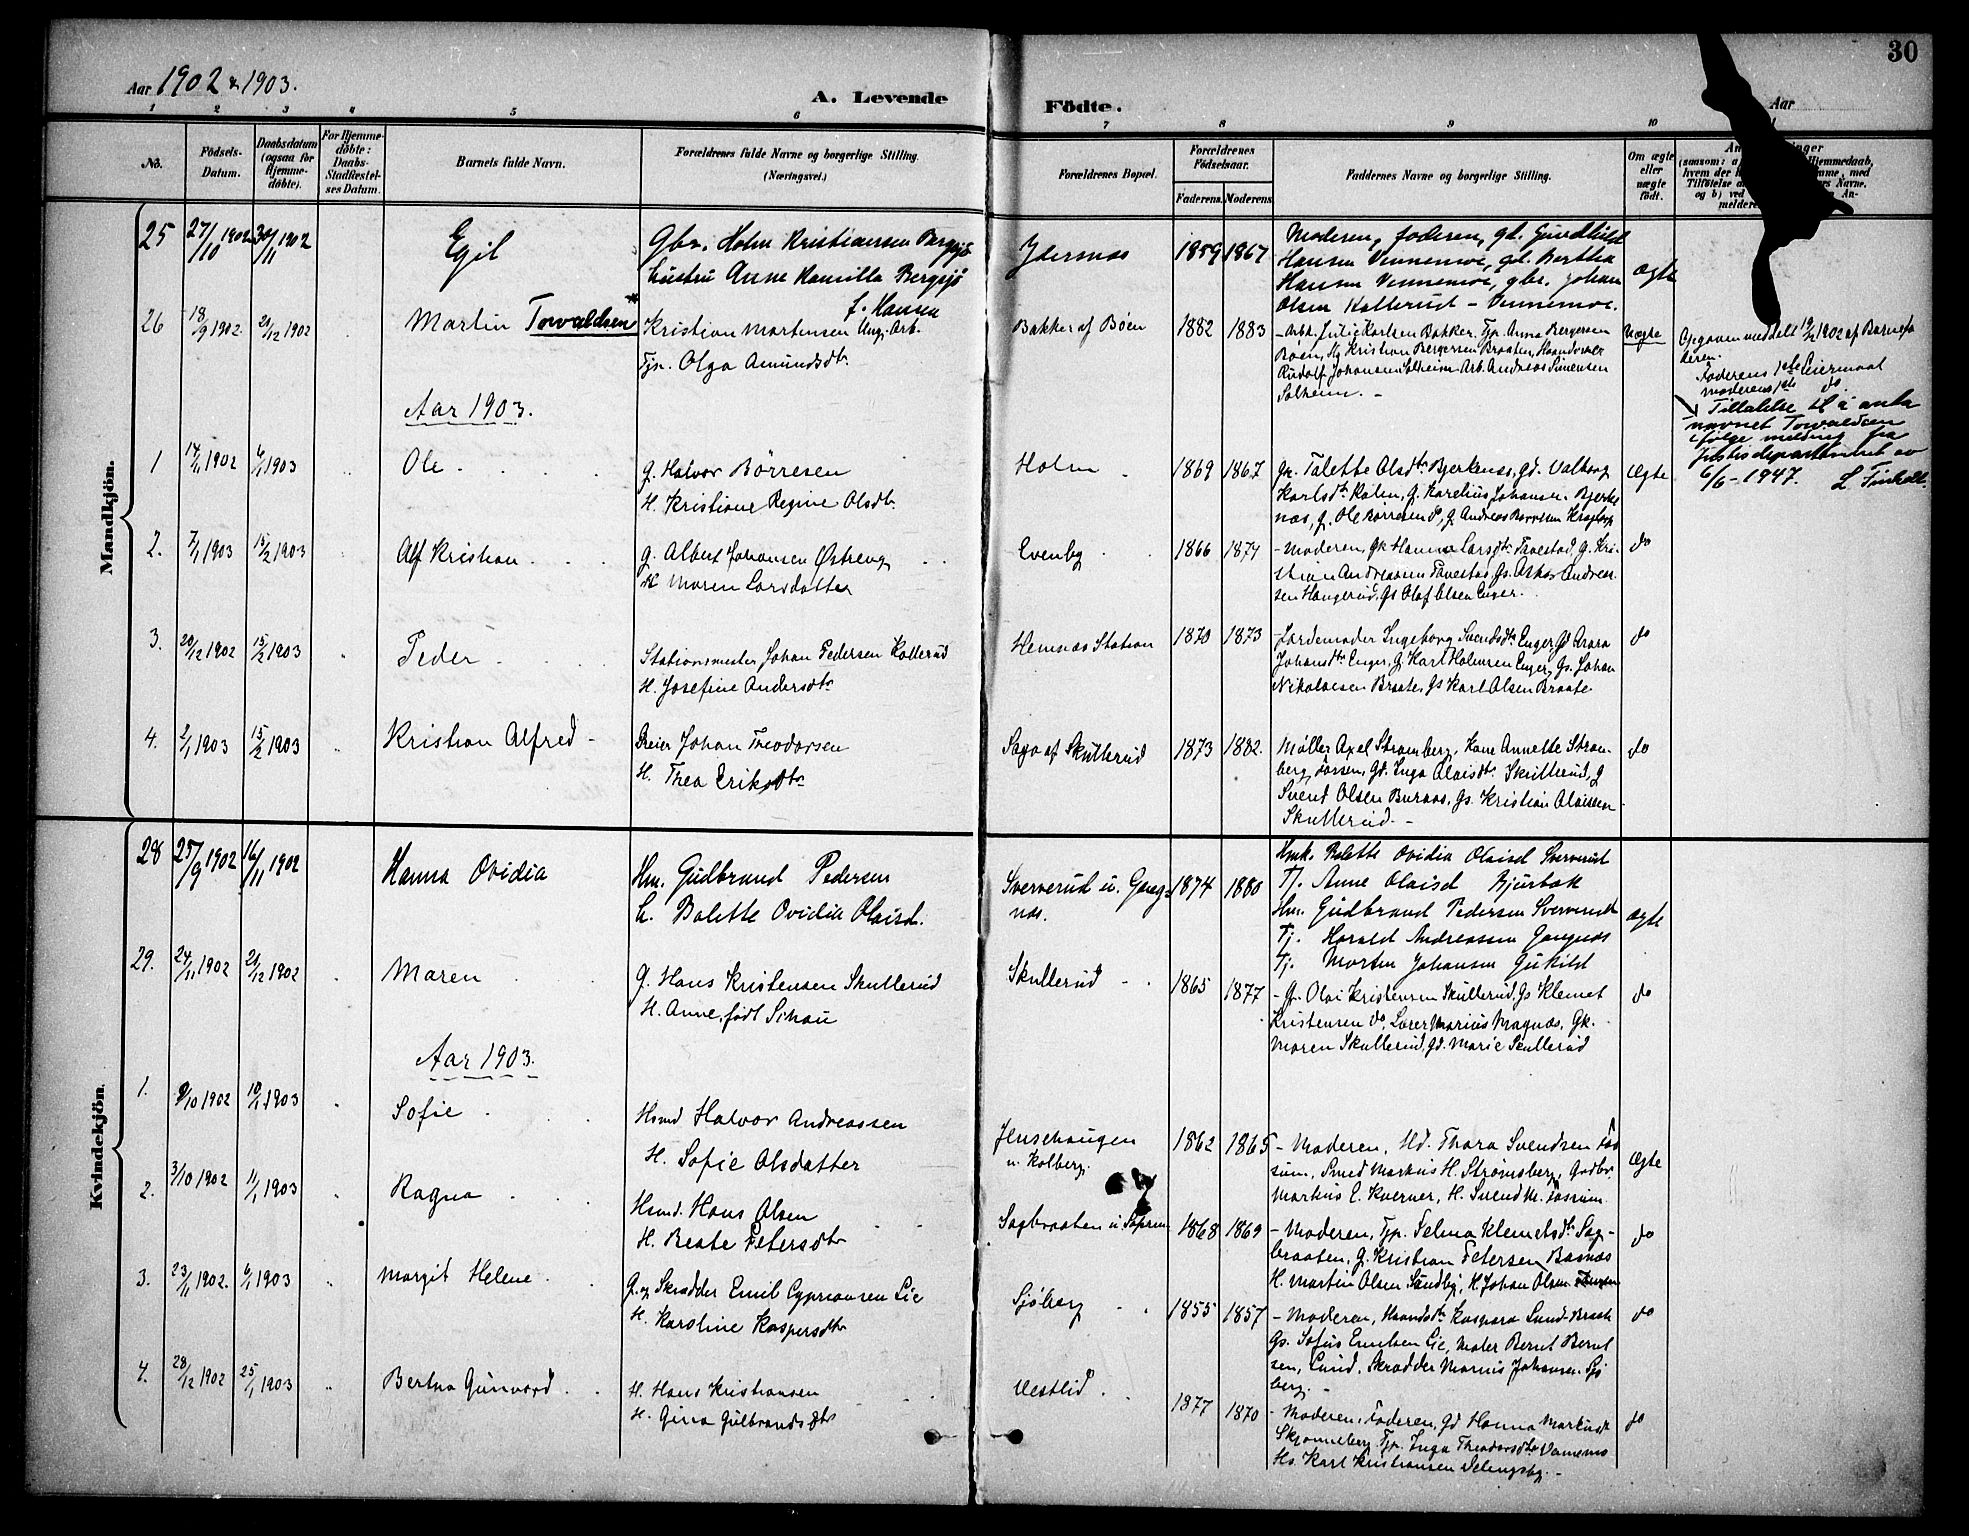 30
Aar 1902 & 1903.
A. Levende
Födte.
Aar
1 2 3 4 5 6 7 8 9 10
No.
Födsels-Datum.
Daabsdatum (ogsaa for Hjemmedöbte).
For Hjemmedöbte: Daabs-Stadfæstelses Datum.
Barnets fulde Navn.
Forældrenes fulde Navne og borgerlige Stilling. (Næringsvei.)
Forældrenes Bopæl.
Forældrenes Fødselsaar.
Faderens. Moderens.
Faddernes Navne og borgerlige Stilling.
Om ægte eller uægte født.
Mandkjön.
25 27/10 1902 30/11 1902 Egil
Gbr. Holm Kristiansen Bergsjø
hustru Anne Kamilla Bergsjø
f. Hansen
Ydersnes 1859 1867
Moderen, faderen, gd. Gundhild
Hansen Vennemoe, gd. Bertha
Hansen Vennemoe, gbr. Johan
Olsen Kallerud - Vennemoe.
ægte
26 18/9 1902. 21/12 1902 Martin Torvaldsen*
Kristian Martensen Ung. Arb.
Tjp. Olga Amundsdtr.
Bakker af Böen 1882 1883
Arb. Julig Karlsen Bakker. Tjp. Anna Bergersen
Böen, Ug Kristian Bergersen Braaten, Haandverker
Rudolf Johansen Solheim Arb. Andreas Simensen
Solheim. -
Uægte
Opgaven meddelt 19/12 1902 af Barnefa
deren.
Faderens 1ste Leiermaal
moderens 1ste do
Tillatelse til å anta
navnet Torvaldsen
ifølge melding fra
Justisdepartementet av
6/6 - 1947.
Aar 1903.
1 14/11 1902 6/1 1903 Ole
G. Halvor Börresen
H. Kristiane Regine Olsdtr.
Holm 1869 1867
Gk. Talette Olsdtr Bjerkenæs, Gd. Valborg
Karlsdtr Holm, G. Karelius Johansen Bjerke
næs, G. Ole Börresen do, G. Andreas Börresen
Ægte
2. 7/1 1903 15/2 1903 Alf Kristian
G. Albert Johansen Østreng
H. Maren Larsdatter
Evenby 1866 1874
- Moderen, Gk Hanna Larsdtr Tavestad, G. Kri-
stian Andreassen Tavestad, Gs. Askar Andreas-
sen Haugerud, Gs Olaf Olsen Enger.
do
3. 20/12 1902 15/2 1903 Peder
Stationsmester Johan Pedersen Kollerud
H. Josefine Andersdtr
Hemnæs Station 1870 1873
- Jordemoder Ingeborg Svendsdtr Enger Gd
Johansdtr Enger, G. Karl Halvorsen Enger, Gs. Johan
Nikolaisen Braate, Gs Karl Olsen Braate
do
4. 2/1 1903 15/2 1903 Kristian Alfred -
Johan Theodorsen
H. Thea Eriksdtr
Saga af Skullerud 1873 1882.
Møller Axel Strømberg, Kone Annette Strøm-
berg, Fossen, Gd. Inga Olaisdtr Skullerud, G
Svend Olsen Buraas, Gs. Kristian Olaisen
Skullerud. -
do
Kvindekjön.
28 25/9 1902 16/11 1902 Hanna Ovidia
Hm. Gudbrand Pedersen
h. Balette Ovidia Olaisd.
Sververud u. Gangnæs. 1874 1880
Hmk. Balette Ovidia Olaisd Sververud
Tj. Anne Olaisd Bjurbæk
Hm. Gudbrand Pedersen Sververud
Tj. Harald Andreassen Gangnæs
Tj. Morten Johansen Gukild
ægte
29. 24/11 1902 21/12 1902 Maren
G. Hans Kristensen Skullerud
H. Anne, født Sikau
Skullerud 1865 1877
- G. Olai Kristensen Skullerud, Gs Klemet
Kristensen do, Lærer Marius Magnæs, Gk.
Maren Skullerud, Gd. Marie Skullerud
do
Aar 1903.
1. 9/10 1902 10/1 1903 Sofie
Hsmd Halvor Andreassen
H. Sofie Olsdatter
Jenschaugen
u. Kolberg. 1862 1865
- Moderen, Hd. Thora Svendsen Fos
sum, Smed Markus H. Strømsberg, Gaabr.
Markus E. Kverner, H. Svend M. Fossum.
Ægte
2. 3/10 1902 11/1 1903 Ragna
Hsmd. Hans Olsen
H. Beate Petersdtr
Sagbraaten u. 1868 1869
- Moderen, Tjp. Selma Klemetsdtr Sag-
braaten, G. Kristian Petersen Basnæs
H. Martin Olsen Sundby, H. Johan Olsen
do
3. 23/11 1902. 6/1 1903 Margit Helene
G. og Skrædder Emil Cypriansen Lie
H. Karoline Kaspersdtr
Sjöberg 1855 1857
- Moderen, Kaspara Lund-Braate
Gs. Sofus Emilsen Lie, Maler Bernt Bernt
sen, Lund. Skrædder Marius Johansen Sjö
berg. -
do
4. 28/12 1902 25/1 1903 Berthe Gunvord
H. Hans Kristiansen
H. Gina Gulbrandsdtr
Vestlid 1877 1870
- Moderen, Faderen, Gd Hanna Markusdtr
Skjønneberg, Tjp. Inga Theodorsdtr
Hs. Karl Kristiansen
do